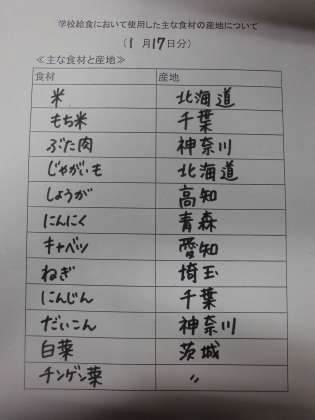 学校給食において使用した主な食材の産地について
(1月17日分)
≪主な食材と産地≫
食材 産地
米 北海道
もち米 千葉
ぶた肉 神奈川
じゃがいも 北海道
しょうが 高知
にんにく 青森
キャベツ 愛知
ねぎ 埼玉
にんじん 千葉
だいこん 神奈川
白菜 茨城
チンゲン菜 〃